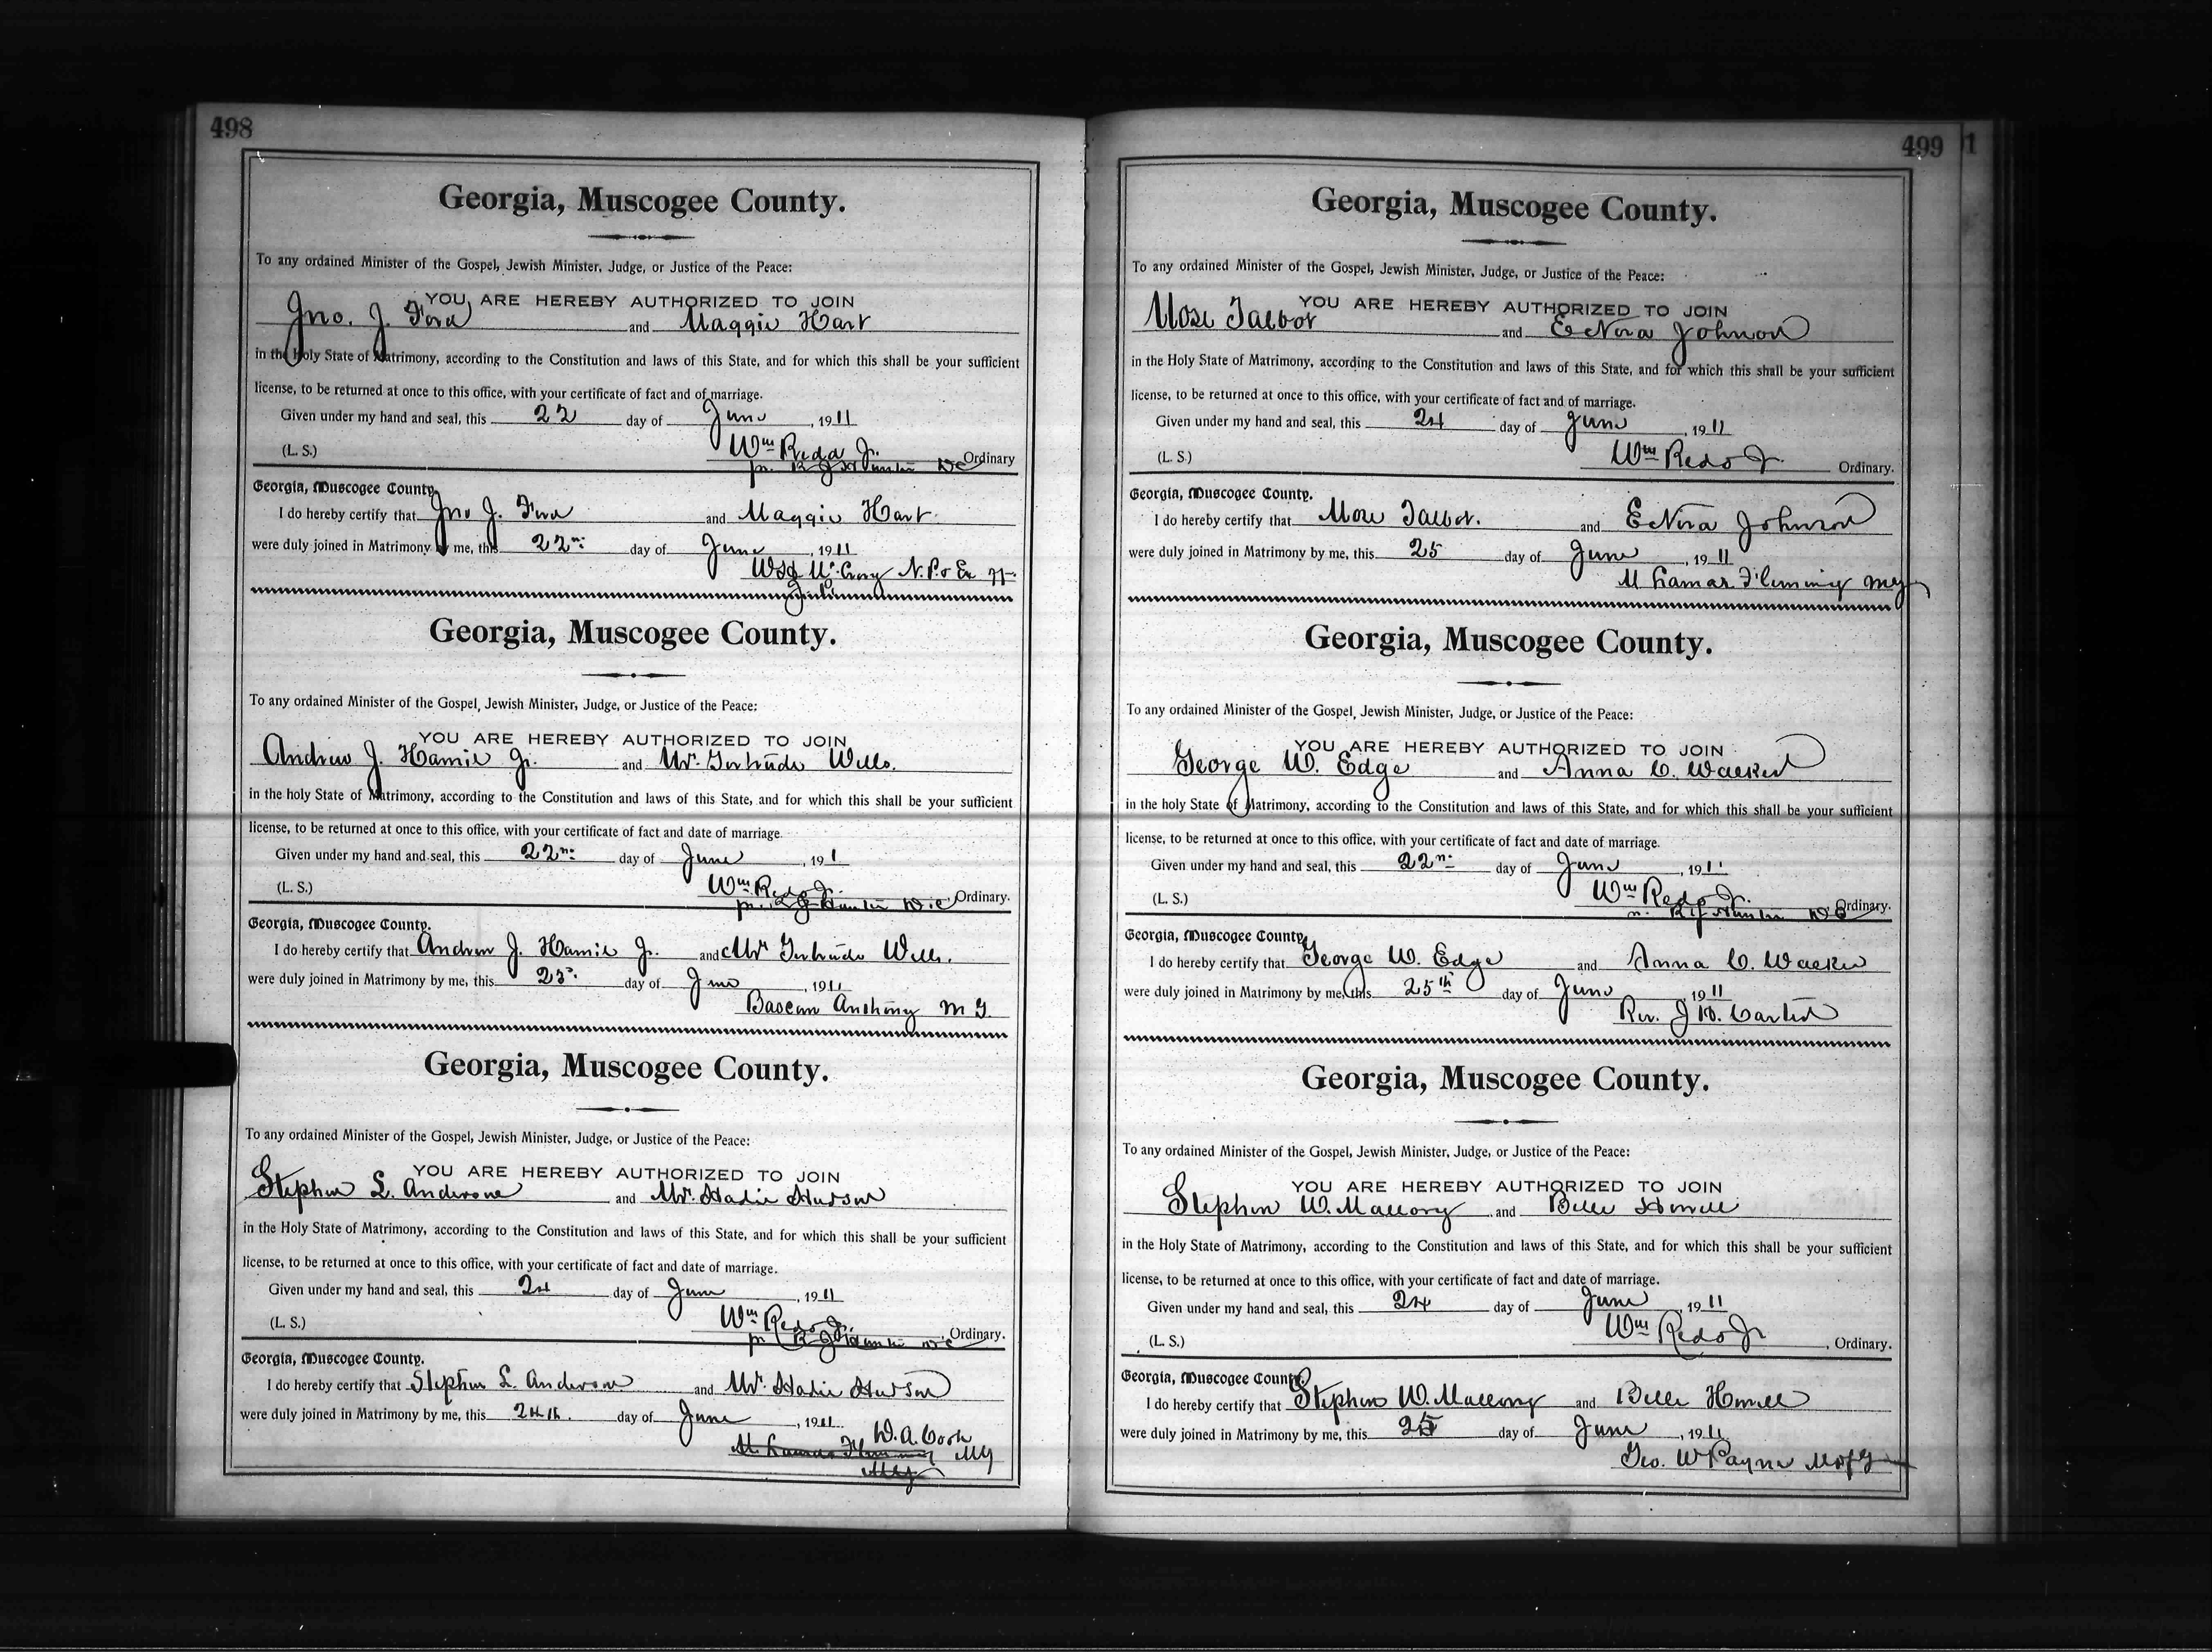 498
Georgia, Muscogee County.
To any ordained Minister of the Gospel, Jewish Minister, Judge, or Justice of the Peace:
YOU ARE HEREBY AUTHORIZED TO JOIN
Jno. J. Ford and Maggie Hart
in the Holy State of Matrimony, according to the Constitution and laws of this State, and for which this shall be your sufficient
license, to be returned at once to this office, with your certificate of fact and of marriage.
Given under my hand and seal, this 22 day of June, 1911
(L. S.) Wm Redd Jr.
Ordinary
Georgia, Muscogee County.
I do hereby certify that Jno J. Ford and Maggie Hart
were duly joined in Matrimony by me, this 22n day of June, 1911
N.P. & Ex
Georgia, Muscogee County.
To any ordained Minister of the Gospel, Jewish Minister, Judge, or Justice of the Peace:
YOU ARE HEREBY AUTHORIZED TO JOIN
Andrew J. Hamil Jr. and Mrs. Gertrude Wells.
in the holy State of Matrimony, according to the Constitution and laws of this State, and for which this shall be your sufficient
license, to be returned at once to this office, with your certificate of fact and date of marriage.
Given under my hand and seal, this 22n day of June, 191
(L. S.) Wm Redd Jr.
Ordinary.
Georgia, Muscogee County.
I do hereby certify that Andrew J. Hamil Jr. and Mrs Gertrude Wells.
were duly joined in Matrimony by me, this day of June, 1911
Bascom Anthony M G
Georgia, Muscogee County.
To any ordained Minister of the Gospel, Jewish Minister, Judge, or Justice of the Peace:
YOU ARE HEREBY AUTHORIZED TO JOIN
Stephen L. Anderson and Mrs. Sadie Hudson
in the Holy State of Matrimony, according to the Constitution and laws of this State, and for which this shall be your sufficient
license, to be returned at once to this office, with your certificate of fact and date of marriage.
Given under my hand and seal, this 24 day of June, 1911
(L. S.) Wm Redd Jr.
Ordinary.
Georgia, Muscogee County.
I do hereby certify that Stephen L. Anderson and Mrs. Sadie Hudson
were duly joined in Matrimony by me, this 24th. day of June, 1911
W. A. Cook
M Lamar Fleming MG
MG
499
Georgia, Muscogee County.
To any ordained Minister of the Gospel, Jewish Minister, Judge, or Justice of the Peace:
YOU ARE HEREBY AUTHORIZED TO JOIN
Mose Talbot and EcNora Johnson
in the Holy State of Matrimony, according to the Constitution and laws of this State, and for which this shall be your sufficient
license, to be returned at once to this office, with your certificate of fact and of marriage.
Given under my hand and seal, this 24 day of June, 1911
(L. S.) Wm Redd Jr. Ordinary.
Georgia, Muscogee County.
I do hereby certify that Mose Talbot. and EcNora Johnson
were duly joined in Matrimony by me, this 25 day of June, 1911
M Lamar Fleming MG
Georgia, Muscogee County.
To any ordained Minister of the Gospel, Jewish Minister, Judge, or Justice of the Peace:
YOU ARE HEREBY AUTHORIZED TO JOIN
George W. Edge and Anna C. Walker
in the holy State of Matrimony, according to the Constitution and laws of this State, and for which this shall be your sufficient
license, to be returned at once to this office, with your certificate of fact and date of marriage.
Given under my hand and seal, this 22n day of June, 1911
(L. S.) Wm Redd Jr.
Ordinary.
Georgia, Muscogee County.
I do hereby certify that George W. Edge and Anna C. Walker
were duly joined in Matrimony by me, this 25th day of June 1911
Rev. J W. Carter
Georgia, Muscogee County.
To any ordained Minister of the Gospel, Jewish Minister, Judge, or Justice of the Peace:
YOU ARE HEREBY AUTHORIZED TO JOIN
Stephen W. Mallory and Belle Howell
in the Holy State of Matrimony, according to the Constitution and laws of this State, and for which this shall be your sufficient
license, to be returned at once to this office, with your certificate of fact and date of marriage.
Given under my hand and seal, this 24 day of June, 1911
(L. S.) Wm Redd Jr, Ordinary.
Georgia, Muscogee County.
I do hereby certify that Stephen W. Mallory and Belle Howell
were duly joined in Matrimony by me, this 25 day of June, 1911
Geo. W Payne M of G